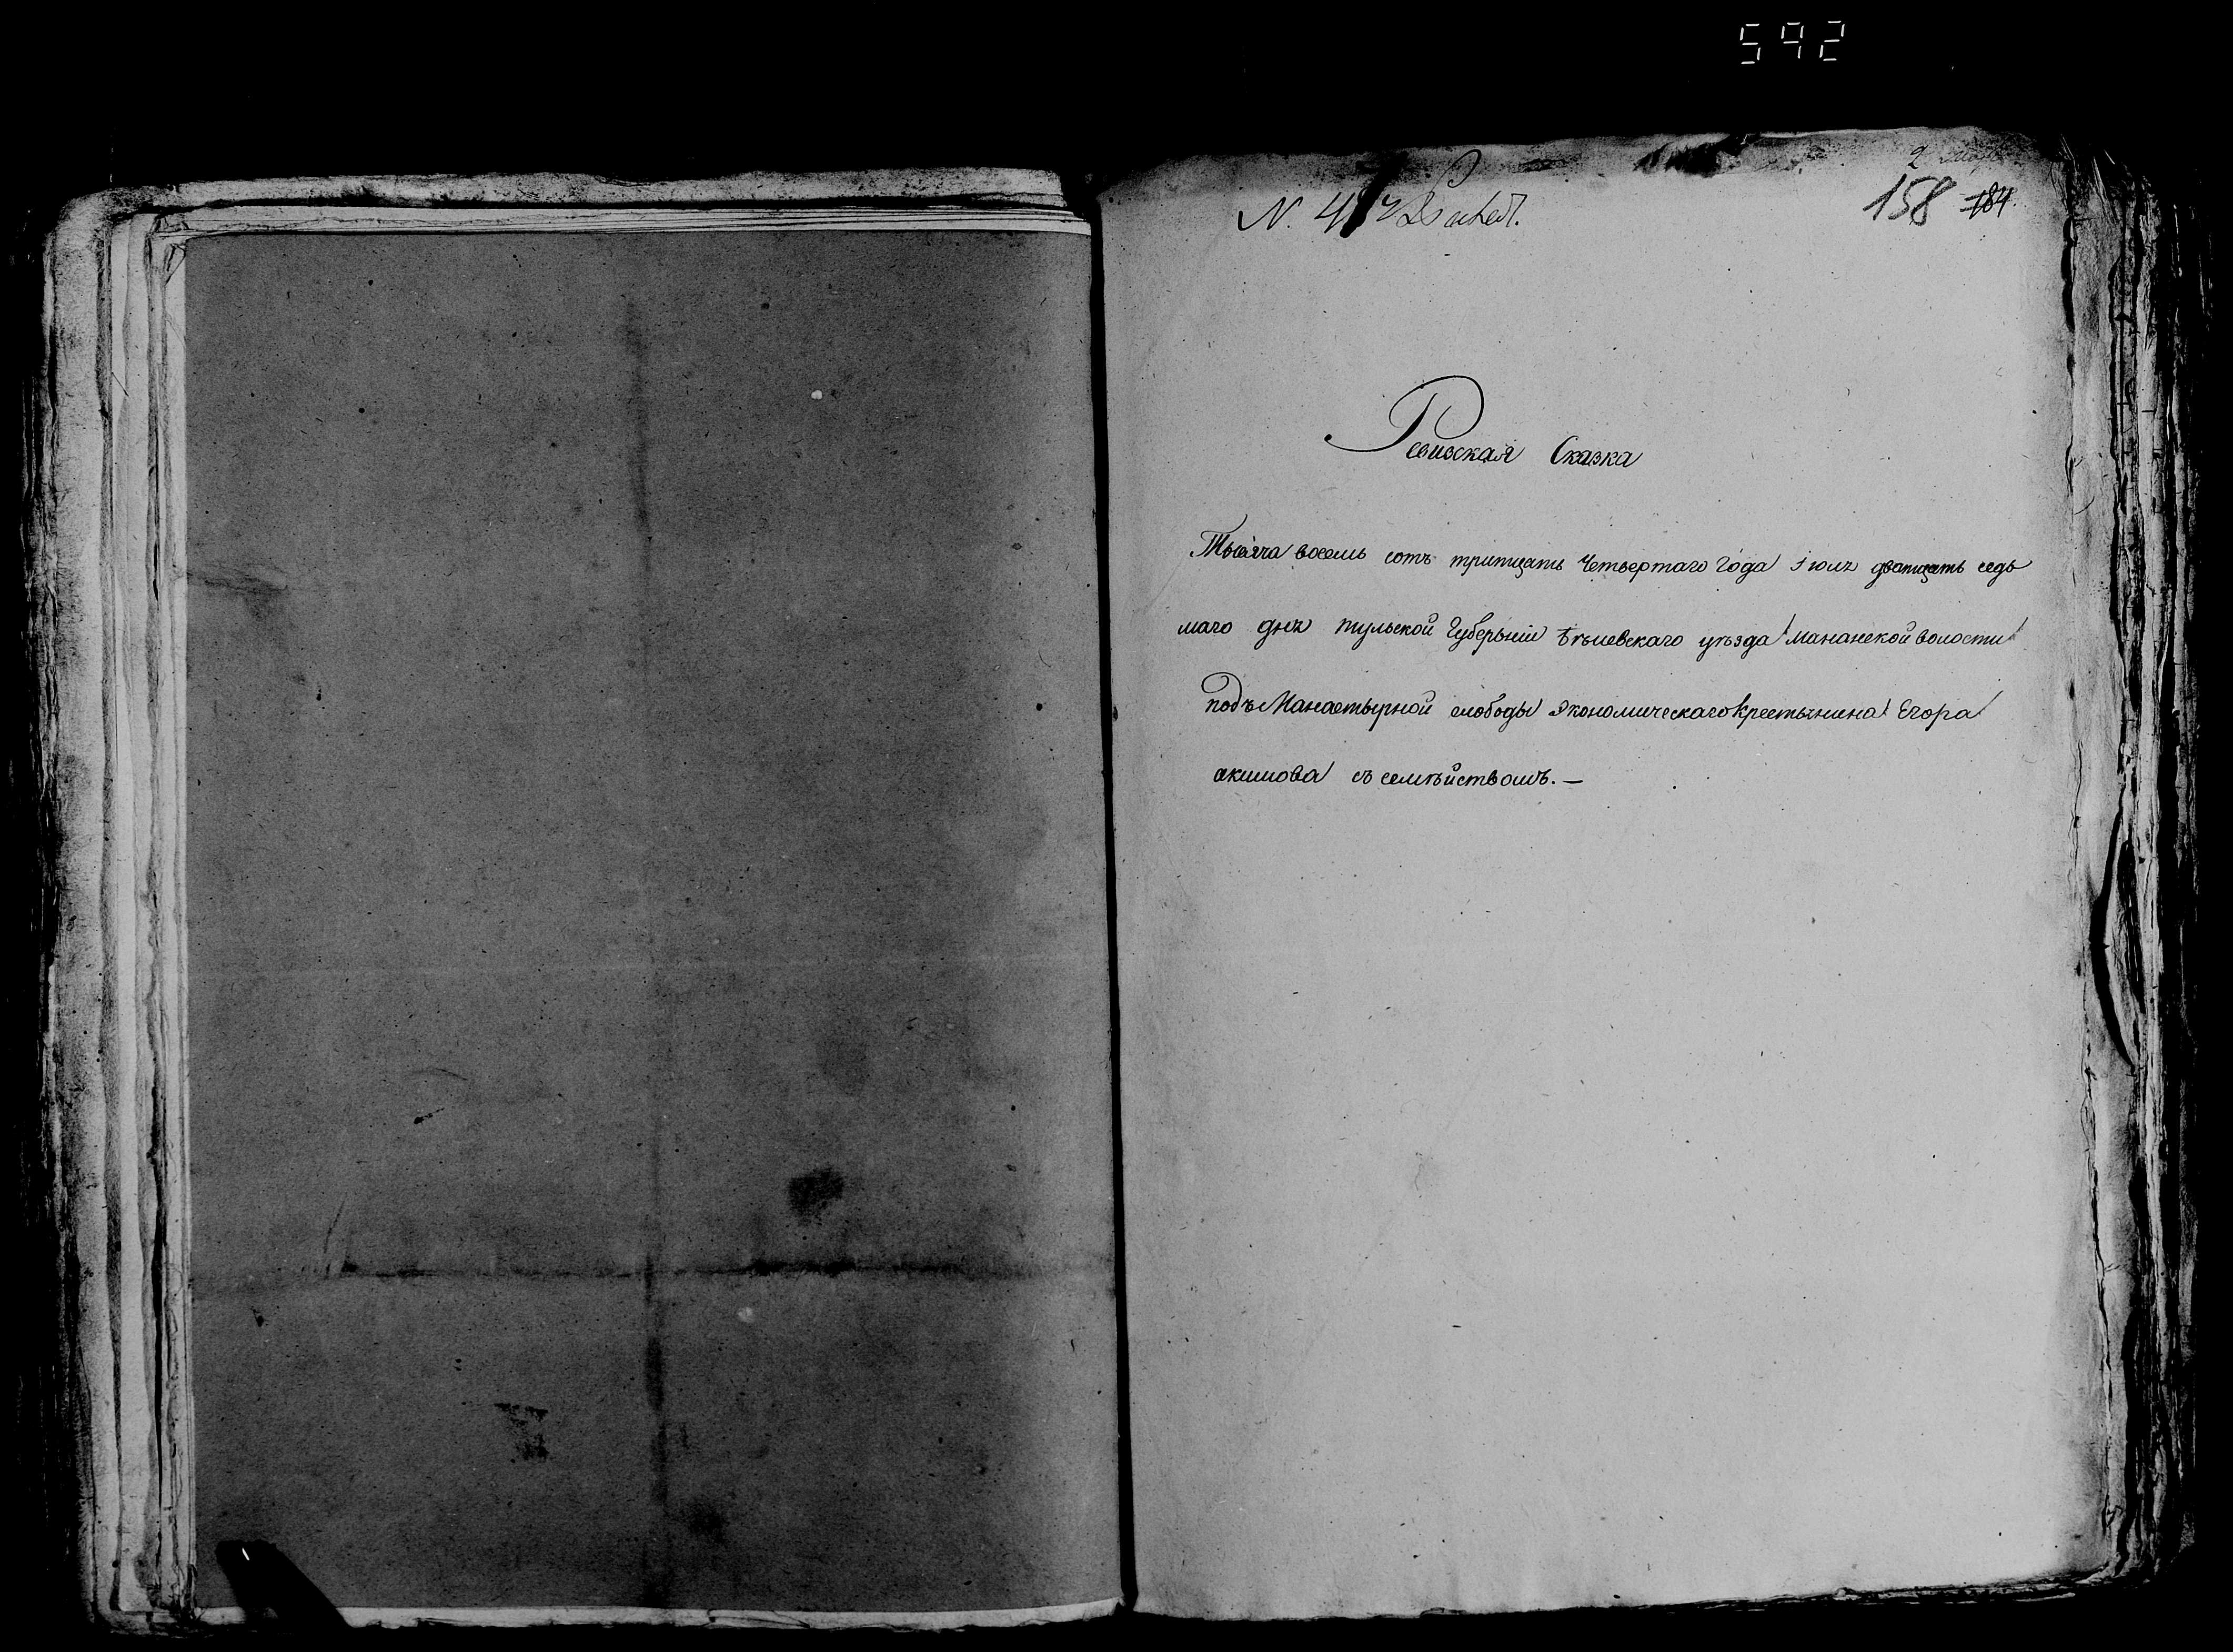 592
158 184
N. 4
Ревизская Сказка
Тысяча восемь сотъ тритцать Четвертаго Года Iюля дватцать седь
маго дня тульской Губерніи Бѣлевскаго уѣзда Мананской волости
подъ Манастырной слободы экономическаго крестьянина Егора
акимова съ семѣйствомъ. —